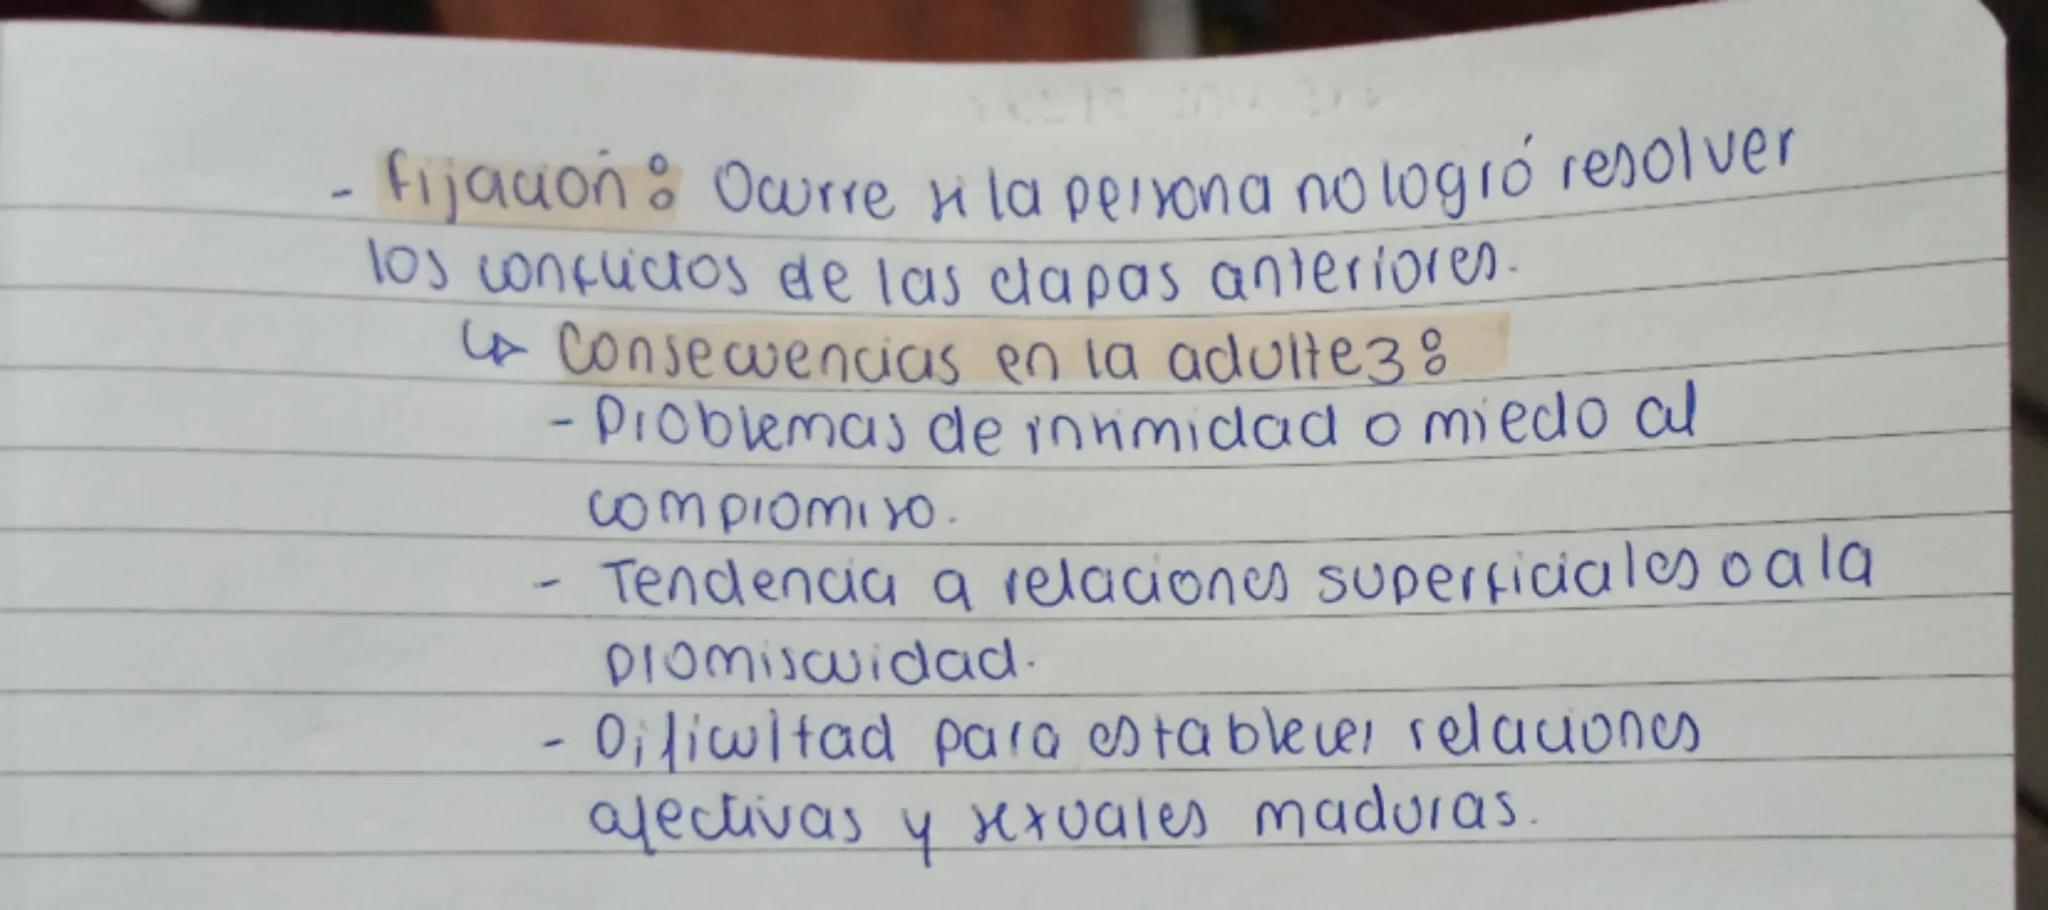 - fijación: Ocurre si la persona no logró resolver
los conflictos de las etapas anteriores.
↳ Consecuencias en la adultez:
- Problemas de intimidad o miedo al
compromiso.
- Tendencia a relaciones superficiales o a la
promiscuidad.
- Dificultad para establecer relaciones
afectivas y sexuales maduras.